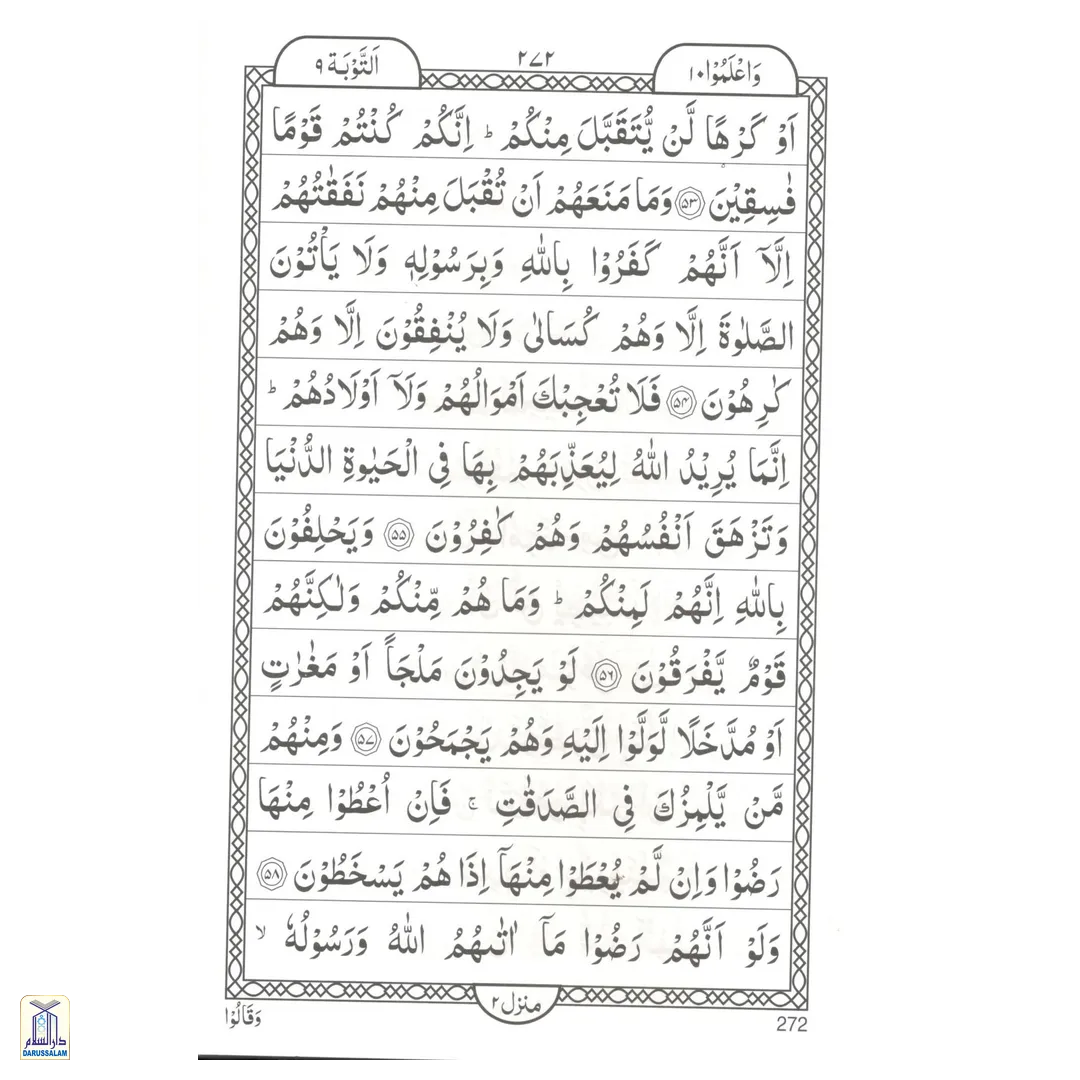 اَلتَّوْبَة ٩
٢٧٢
وَاعْلَمُوْا ١٠
اَوْ كَرْهًا لَّنْ يُّتَقَبَّلَ مِنْكُمْ ؕ اِنَّكُمْ كُنْتُمْ قَوْمًا
فٰسِقِيْنَ ﴿۵۳﴾ وَمَا مَنَعَهُمْ اَنْ تُقْبَلَ مِنْهُمْ نَفَقٰتُهُمْ
اِلَّاۤ اَنَّهُمْ كَفَرُوْا بِاللّٰهِ وَبِرَسُوْلِهٖ وَلَا يَاْتُوْنَ
الصَّلٰوةَ اِلَّا وَهُمْ كُسَالٰى وَلَا يُنْفِقُوْنَ اِلَّا وَهُمْ
كٰرِهُوْنَ ﴿۵۴﴾ فَلَا تُعْجِبْكَ اَمْوَالُهُمْ وَلَاۤ اَوْلَادُهُمْ ؕ
اِنَّمَا يُرِيْدُ اللّٰهُ لِيُعَذِّبَهُمْ بِهَا فِى الْحَيٰوةِ الدُّنْيَا
وَتَزْهَقَ اَنْفُسُهُمْ وَهُمْ كٰفِرُوْنَ ﴿۵۵﴾ وَيَحْلِفُوْنَ
بِاللّٰهِ اِنَّهُمْ لَمِنْكُمْ ؕ وَمَا هُمْ مِّنْكُمْ وَلٰكِنَّهُمْ
قَوْمٌ يَّفْرَقُوْنَ ﴿۵۶﴾ لَوْ يَجِدُوْنَ مَلْجَاً اَوْ مَغٰرٰتٍ
اَوْ مُدَّخَلًا لَّوَلَّوْا اِلَيْهِ وَهُمْ يَجْمَحُوْنَ ﴿۵۷﴾ وَمِنْهُمْ
مَّنْ يَّلْمِزُكَ فِى الصَّدَقٰتِ ۚ فَاِنْ اُعْطُوْا مِنْهَا
رَضُوْا وَاِنْ لَّمْ يُعْطَوْا مِنْهَاۤ اِذَا هُمْ يَسْخَطُوْنَ ﴿۵۸﴾
وَلَوْ اَنَّهُمْ رَضُوْا مَاۤ اٰتٰىهُمُ اللّٰهُ وَرَسُوْلُهٗ ۙ
منزل ٢
وَقَالُوْا
272
دارالسلام
DARUSSALAM